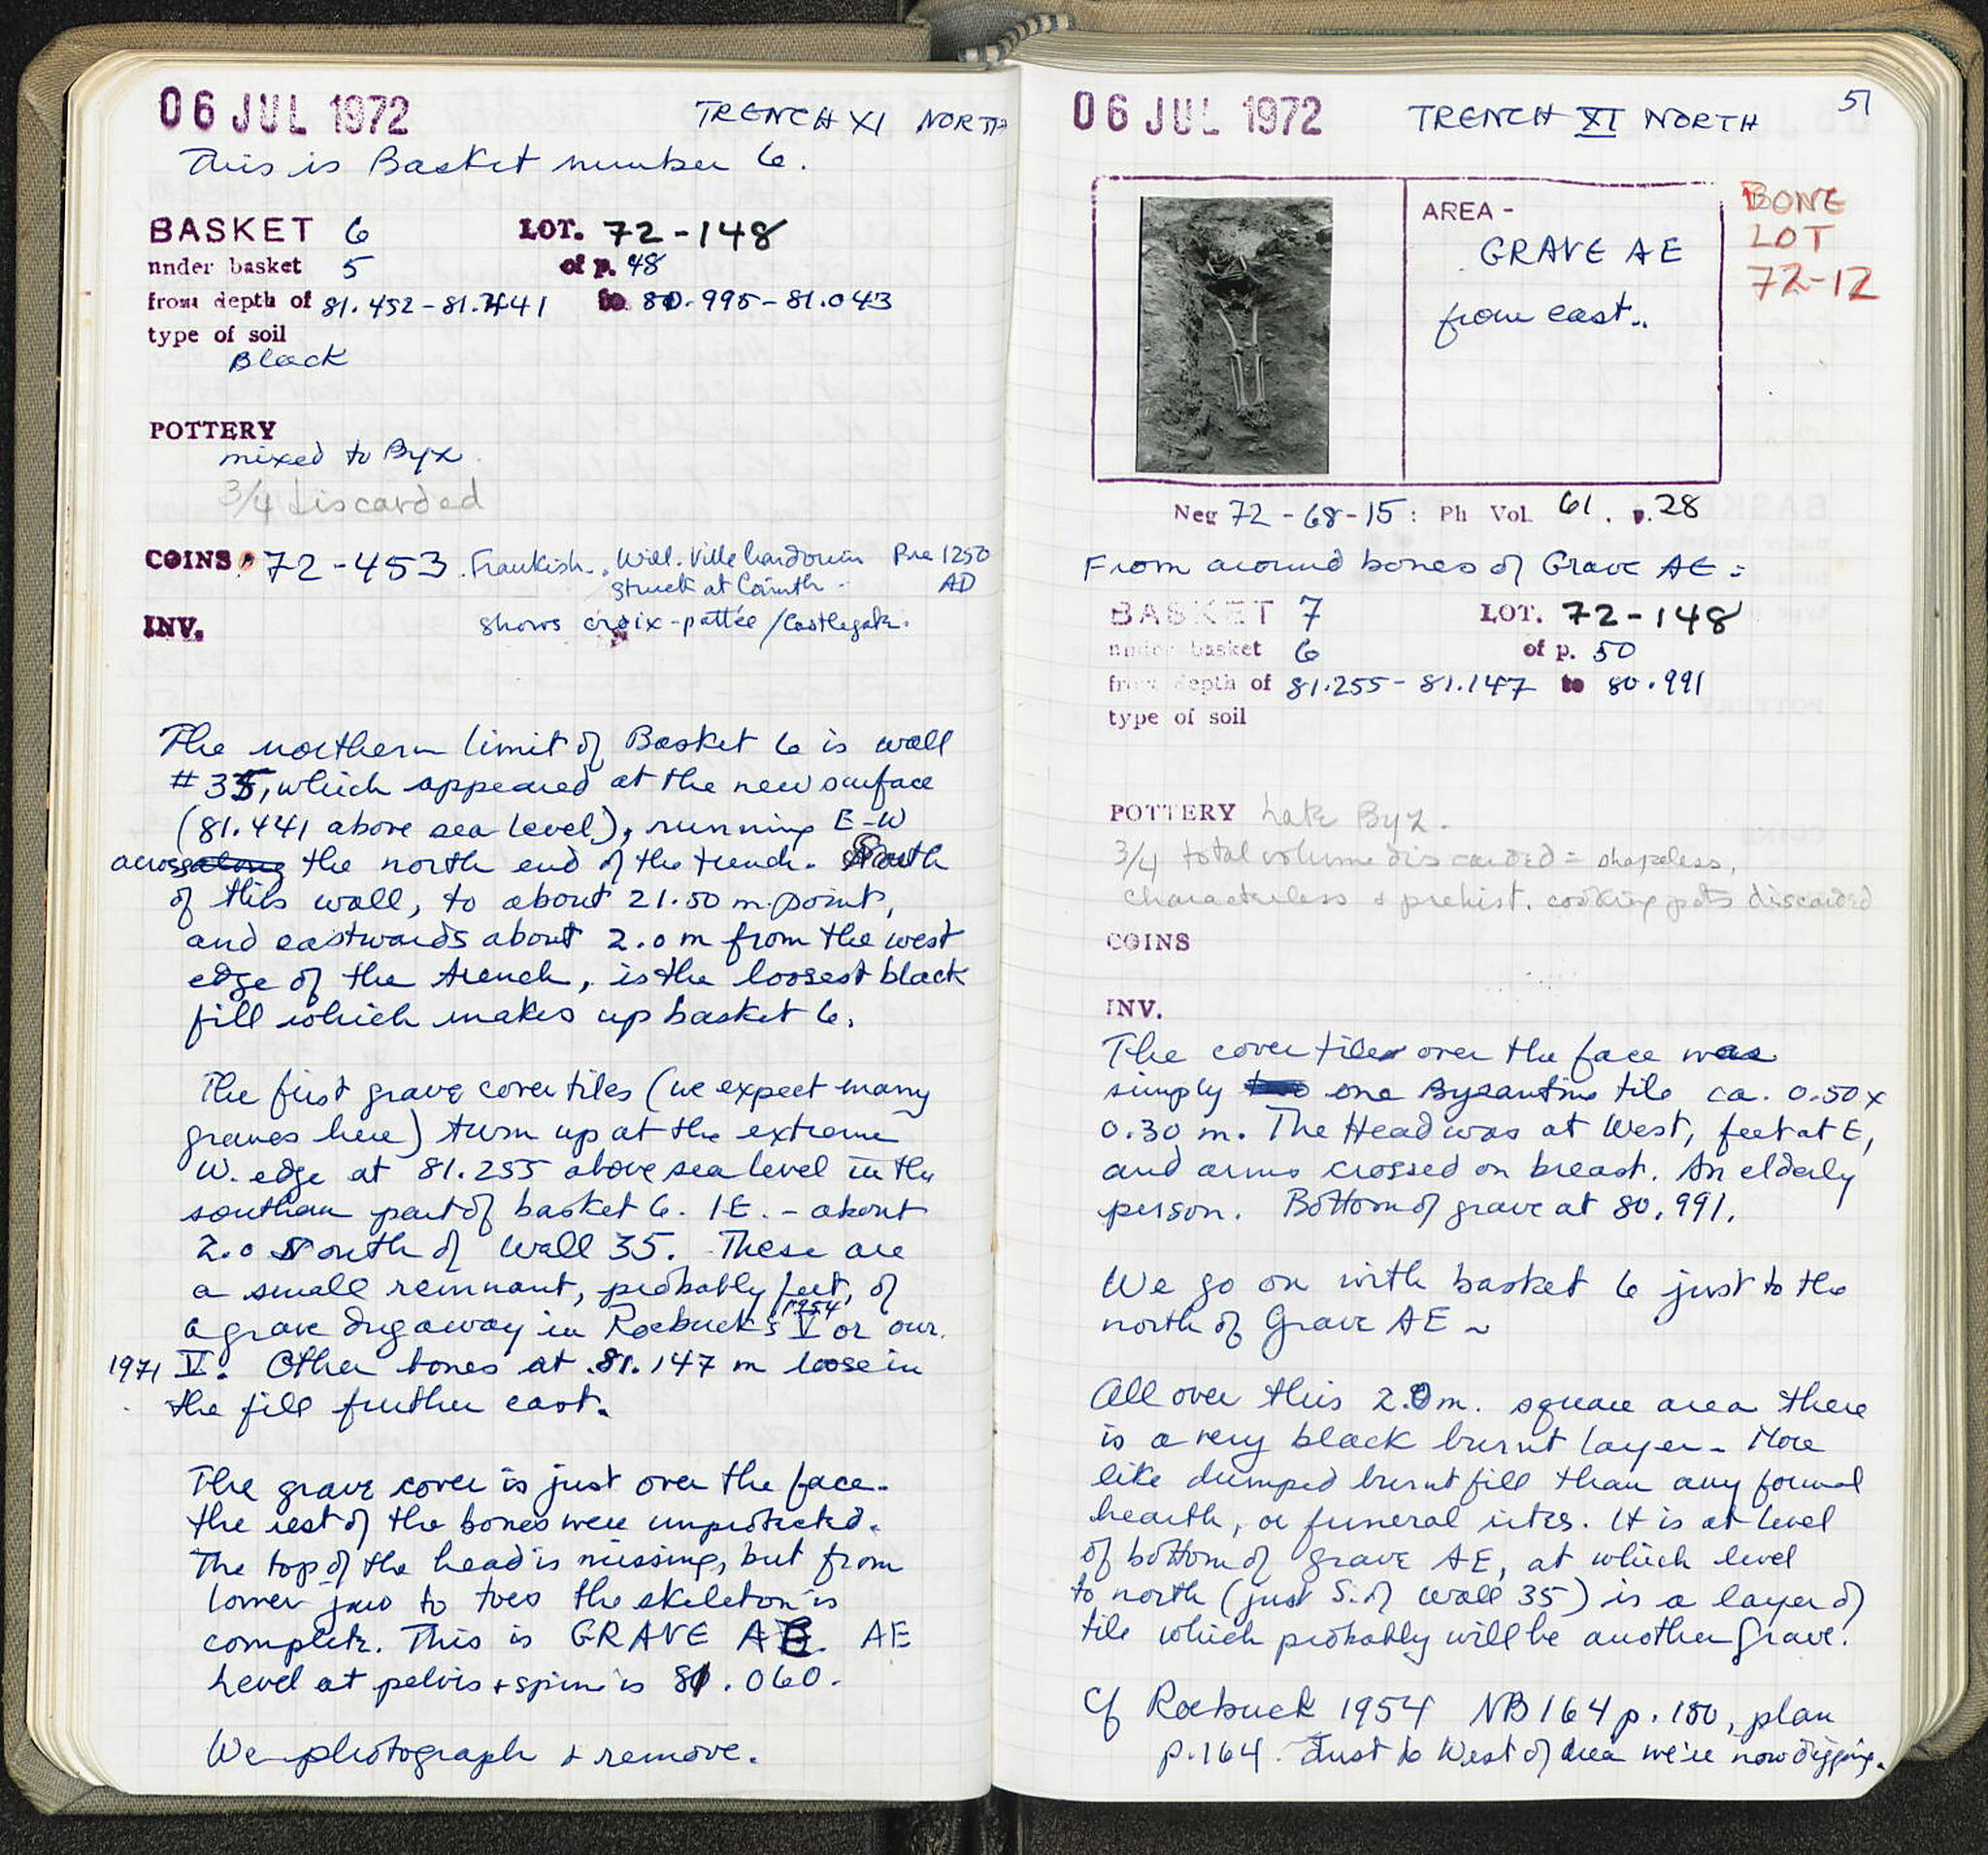 06 JUL 1972 TRENCH XI NORTH
This is Basket number 6.
BASKET 6 LOT. 72-148
under basket 5 of p. 48
from depth of 81.452-81.441 to 80.995-81.043
type of soil
Black
POTTERY
mixed to Byz.
3/4 discarded
COINS 72-453. Frankish. Will. Villehardouin Pre 1250
struck at Corinth - AD
INV. shows croix-pattée/Castlegate.
The northern limit of Basket 6 is wall
#35, which appeared at the new surface
(81.441 above sea level), running E-W
across along the north end of the trench. South
of this wall, to about 21.50 m. point,
and eastwards about 2.0 m from the west
edge of the trench, is the loosest black
fill which makes up basket 6.
The first grave cover tiles (we expect many
graves here) turn up at the extreme
W. edge at 81.255 above sea level in the
southern part of basket 6. I.E. - about
2.0 South of Wall 35. These are
a small remnant, probably feet, of
a grave dug away in Roebuck's 1954 V or our
1971 V. Other bones at 81.147 m loose in
the fill further east.
The grave cover is just over the face.
the rest of the bones were unprotected.
The top of the head is missing, but from
lower jaw to toes the skeleton is
complete. This is GRAVE AE. AE
Level at pelvis + spine is 81.060.
We photograph + remove.
06 JUL 1972 TRENCH XI NORTH 51
AREA -
GRAVE AE
from east..
BONE
LOT
72-12
Neg 72-68-15: Ph Vol. 61. p. 28
From around bones of Grave AE:
BASKET 7 LOT. 72-148
under basket 6 of p. 50
from depth of 81.255-81.147 to 80.991
type of soil
POTTERY Late Byz.
3/4 total volume discarded = shapeless,
characterless + prehist. cooking pots discarded
COINS
INV.
The cover tile over the face was
simply one Byzantine tile ca. 0.50 x
0.30 m. The Head was at West, feet at E,
and arms crossed on breast. An elderly
person. Bottom of grave at 80.991.
We go on with basket 6 just to the
north of Grave AE ~
All over this 2.0 m. square area there
is a very black burnt layer - More
like dumped burnt fill than any formal
hearth, or funeral rites. It is at level
of bottom of grave AE, at which level
to north (just S. of wall 35) is a layer of
tile which probably will be another grave.
Cf Roebuck 1954 NB 164 p. 180, plan
p. 164. Just to West of area we're now digging.